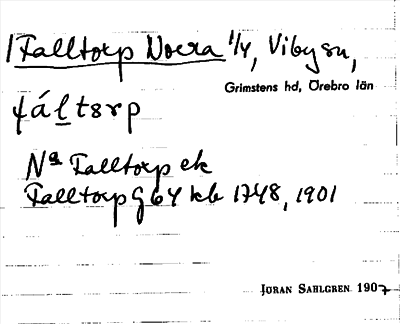 1 Falltorp Norra 1/4, Viby sn,
Grimstens hd, Örebro län
fáltɛrp
Na Falltorp ek
Falltorp G 64 kb 1748, 1901
JÖRAN SAHLGREN 1907